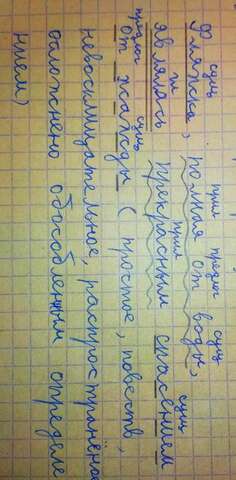 сущ прил предлог сущ
Фляжка, полная от воды,
гл прил сущ
являлась прекрасным спасением
предлог сущ
от жажды (простое, повеств,
невосклицательное, распространённо
осложнено обособленным определе
нием)